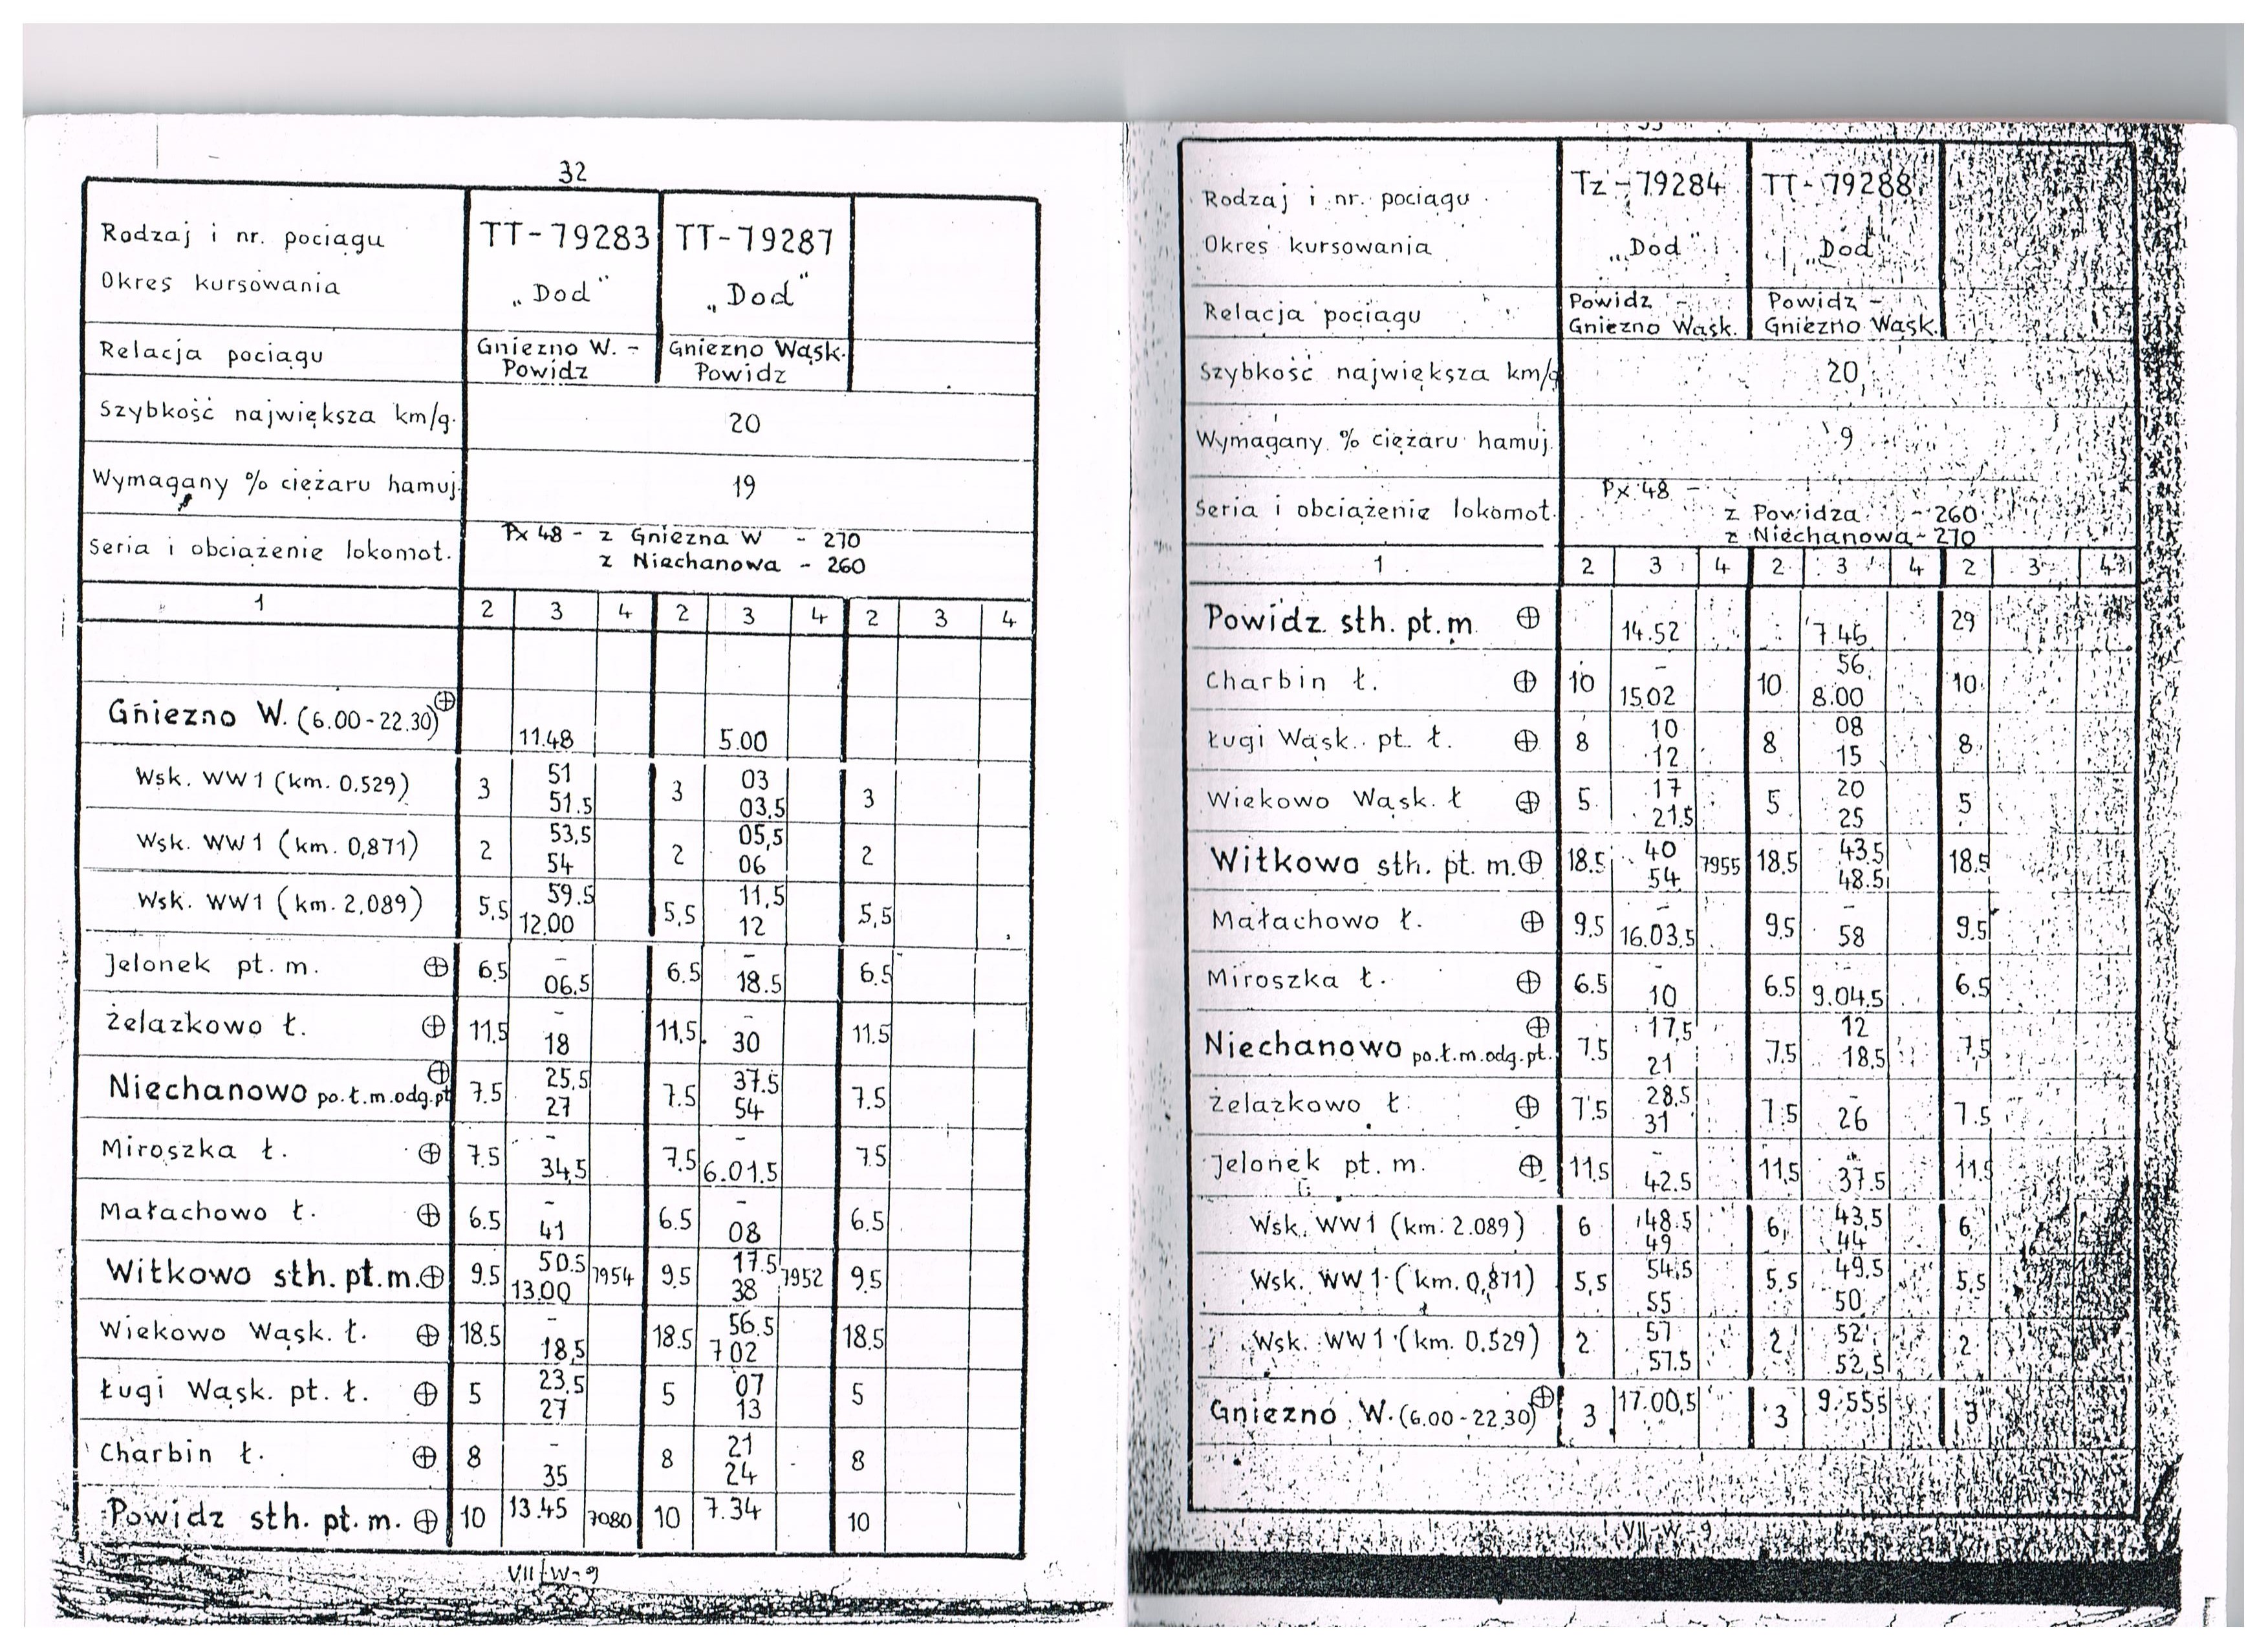 32
Rodzaj i nr. pociągu TT-79283 TT-79287
Okres kursowania „Dod" „Dod"
Relacja pociągu Gniezno W. - Powidz Gniezno Wąsk. Powidz
Szybkość największa km/g. 20
Wymagany % ciężaru hamuj. 19
Seria i obciążenie lokomot. Px 48 - z Gniezna W - 270
z Niechanowa - 260
1 2 3 4 2 3 4 2 3 4
Gniezno W. (6.00-22.30) ⊕ 11.48 5.00
Wsk. WW1 (km. 0.529) 3 51 51.5 3 03 03,5 3
Wsk. WW1 (km. 0,871) 2 53,5 54 2 05,5 06 2
Wsk. WW1 (km. 2,089) 5,5 59.5 12.00 5,5 11,5 12 5,5
Jelonek pt. m. ⊕ 6.5 - 06.5 6.5 - 18.5 6.5
Żelazkowo ł. ⊕ 11.5 - 18 11.5 - 30 11.5
Niechanowo po.ł.m.odg.pt ⊕ 7.5 25,5 27 7.5 37.5 54 7.5
Miroszka ł. ⊕ 7.5 - 34,5 7.5 - 6.01.5 7.5
Małachowo ł. ⊕ 6.5 - 41 6.5 - 08 6.5
Witkowo sth. pt. m. ⊕ 9.5 50.5 13.00 7954 9.5 17.5 38 7952 9.5
Wiekowo Wąsk. ł. ⊕ 18.5 - 18,5 18.5 56.5 7 02 18.5
Ługi Wąsk. pt. ł. ⊕ 5 23,5 27 5 07 13 5
Charbin ł. ⊕ 8 - 35 8 21 24 8
Powidz sth. pt. m. ⊕ 10 13.45 7080 10 7.34 10
VII-W-9
Rodzaj i nr. pociągu Tz-79284 TT-79288
Okres kursowania „Dod" „Dod"
Relacja pociągu Powidz - Gniezno Wąsk. Powidz - Gniezno Wąsk.
Szybkość największa km/g 20
Wymagany % ciężaru hamuj. 9
Seria i obciążenie lokomot. Px 48 -
z Powidza - 260
z Niechanowa - 270
1 2 3 4 2 3 4 2 3 4
Powidz sth. pt. m ⊕ 14.52 7.46 29
Charbin ł. ⊕ 10 - 15.02 10 56 8.00 10
Ługi Wąsk. pt. ł. ⊕ 8 10 12 8 08 15 8
Wiekowo Wąsk. ł ⊕ 5 17 21.5 5 20 25 5
Witkowo sth. pt. m. ⊕ 18.5 40 54 7955 18.5 43.5 48.5 18.5
Małachowo ł. ⊕ 9.5 - 16.03.5 9.5 - 58 9.5
Miroszka ł. ⊕ 6.5 - 10 6.5 - 9.04.5 6.5
Niechanowo po.ł.m.odg.pt. ⊕ 7.5 17,5 21 7.5 12 18.5 7.5
Żelazkowo ł. ⊕ 7.5 28.5 31 7.5 - 26 7.5
Jelonek pt. m. ⊕ 11.5 - 42.5 11.5 - 37.5 11.5
Wsk. WW1 (km. 2.089) 6 48.5 49 6 43,5 44 6
Wsk. WW1 (km. 0,871) 5,5 54,5 55 5,5 49.5 50 5,5
Wsk. WW1 (km. 0,529) 2 57 57.5 2 52 52,5 2
Gniezno W. (6.00-22.30) ⊕ 3 17.00,5 3 9.55,5 3
VII-W-9